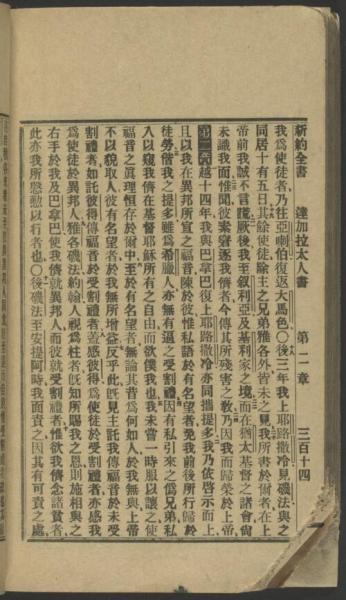 新約全書　達加拉太人書　第二章　三百十四
我爲使徒者乃往亞喇伯復返大馬色○後三年我上耶路撒冷見磯法與之
同居十有五日其餘使徒除主之兄弟雅各外皆未之見我所書於爾者在上
帝前我誠不言謊厥後我至叙利亞及基利家之境而在猶太基督之諸會尚
未識我面惟聞彼素窘逐我儕者今傳其所殘害之教乃因我而歸榮於上帝
第二章越十四年我與巴拿巴復上耶路撒冷亦同攜提多我乃依啓示而上
且以我在異邦所宣之福音陳於彼惟私語於有名望者免我前後所行歸於
徒勞偕我之提多雖爲希臘人亦無有逼之受割禮因有私引來之僞兄弟私
入以窺我儕在基督耶穌所有之自由而欲僕我也我未嘗一時服以讓之使
福音之眞理恒存於爾中至於有名望者無論其昔爲何如人於我無與上帝
不以貌取人彼有名望者於我無所增益反乎此旣見主託我傳福音於未受
割禮者如託彼得傳福音於受割禮者蓋感彼得爲使徒於受割禮者亦感我
爲使徒於異邦人雅各磯法約翰人視爲柱者旣知所賜我之恩則施相與之
右手於我及巴拿巴使我儕就異邦人而彼就受割禮者惟欲我儕念諸貧者
此亦我所慇懃以行者也○後磯法至安提阿時我面責之因其有可責之處